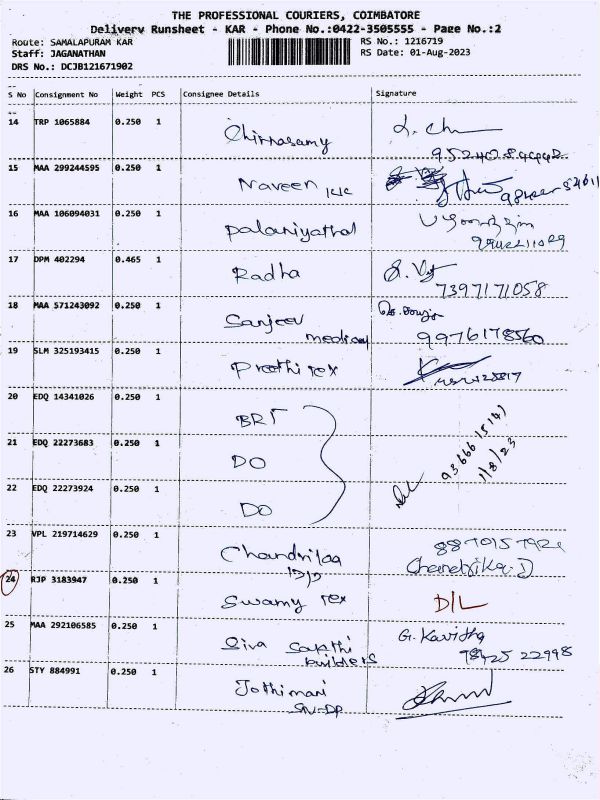 THE PROFESSIONAL COURIERS, COIMBATORE
Delivery Runsheet - KAR - Phone No.:0422-3505555 - Page No.:2
Route: SAMALAPURAM KAR RS No.: 1216719
Staff: JAGANATHAN RS Date: 01-Aug-2023
DRS No.: DCJB121671902
S No Consignment No Weight PCS Consignee Details Signature
14 TRP 1065884 0.250 1 Chinnasamy
15 MAA 299244595 0.250 1 Naveen
16 MAA 106094031 0.250 1 Palaniyathal
17 DPM 402294 0.465 1 Radha
7397171058
18 MAA 571243092 0.250 1 Sanjeev
medical 9976178560
19 SLM 325193415 0.250 1 Preethi tex
20 EDQ 14341026 0.250 1 BRT
21 EDQ 22273683 0.250 1 DO
1/8/23
22 EDQ 22273924 0.250 1 DO
23 VPL 219714629 0.250 1
Chandrika.D
24 RJP 3183947 0.250 1 Swamy tex D/L
25 MAA 292106585 0.250 1 Siva Sakthi G. Kavitha
builders 98425 22998
26 STY 884991 0.250 1 Jothimani